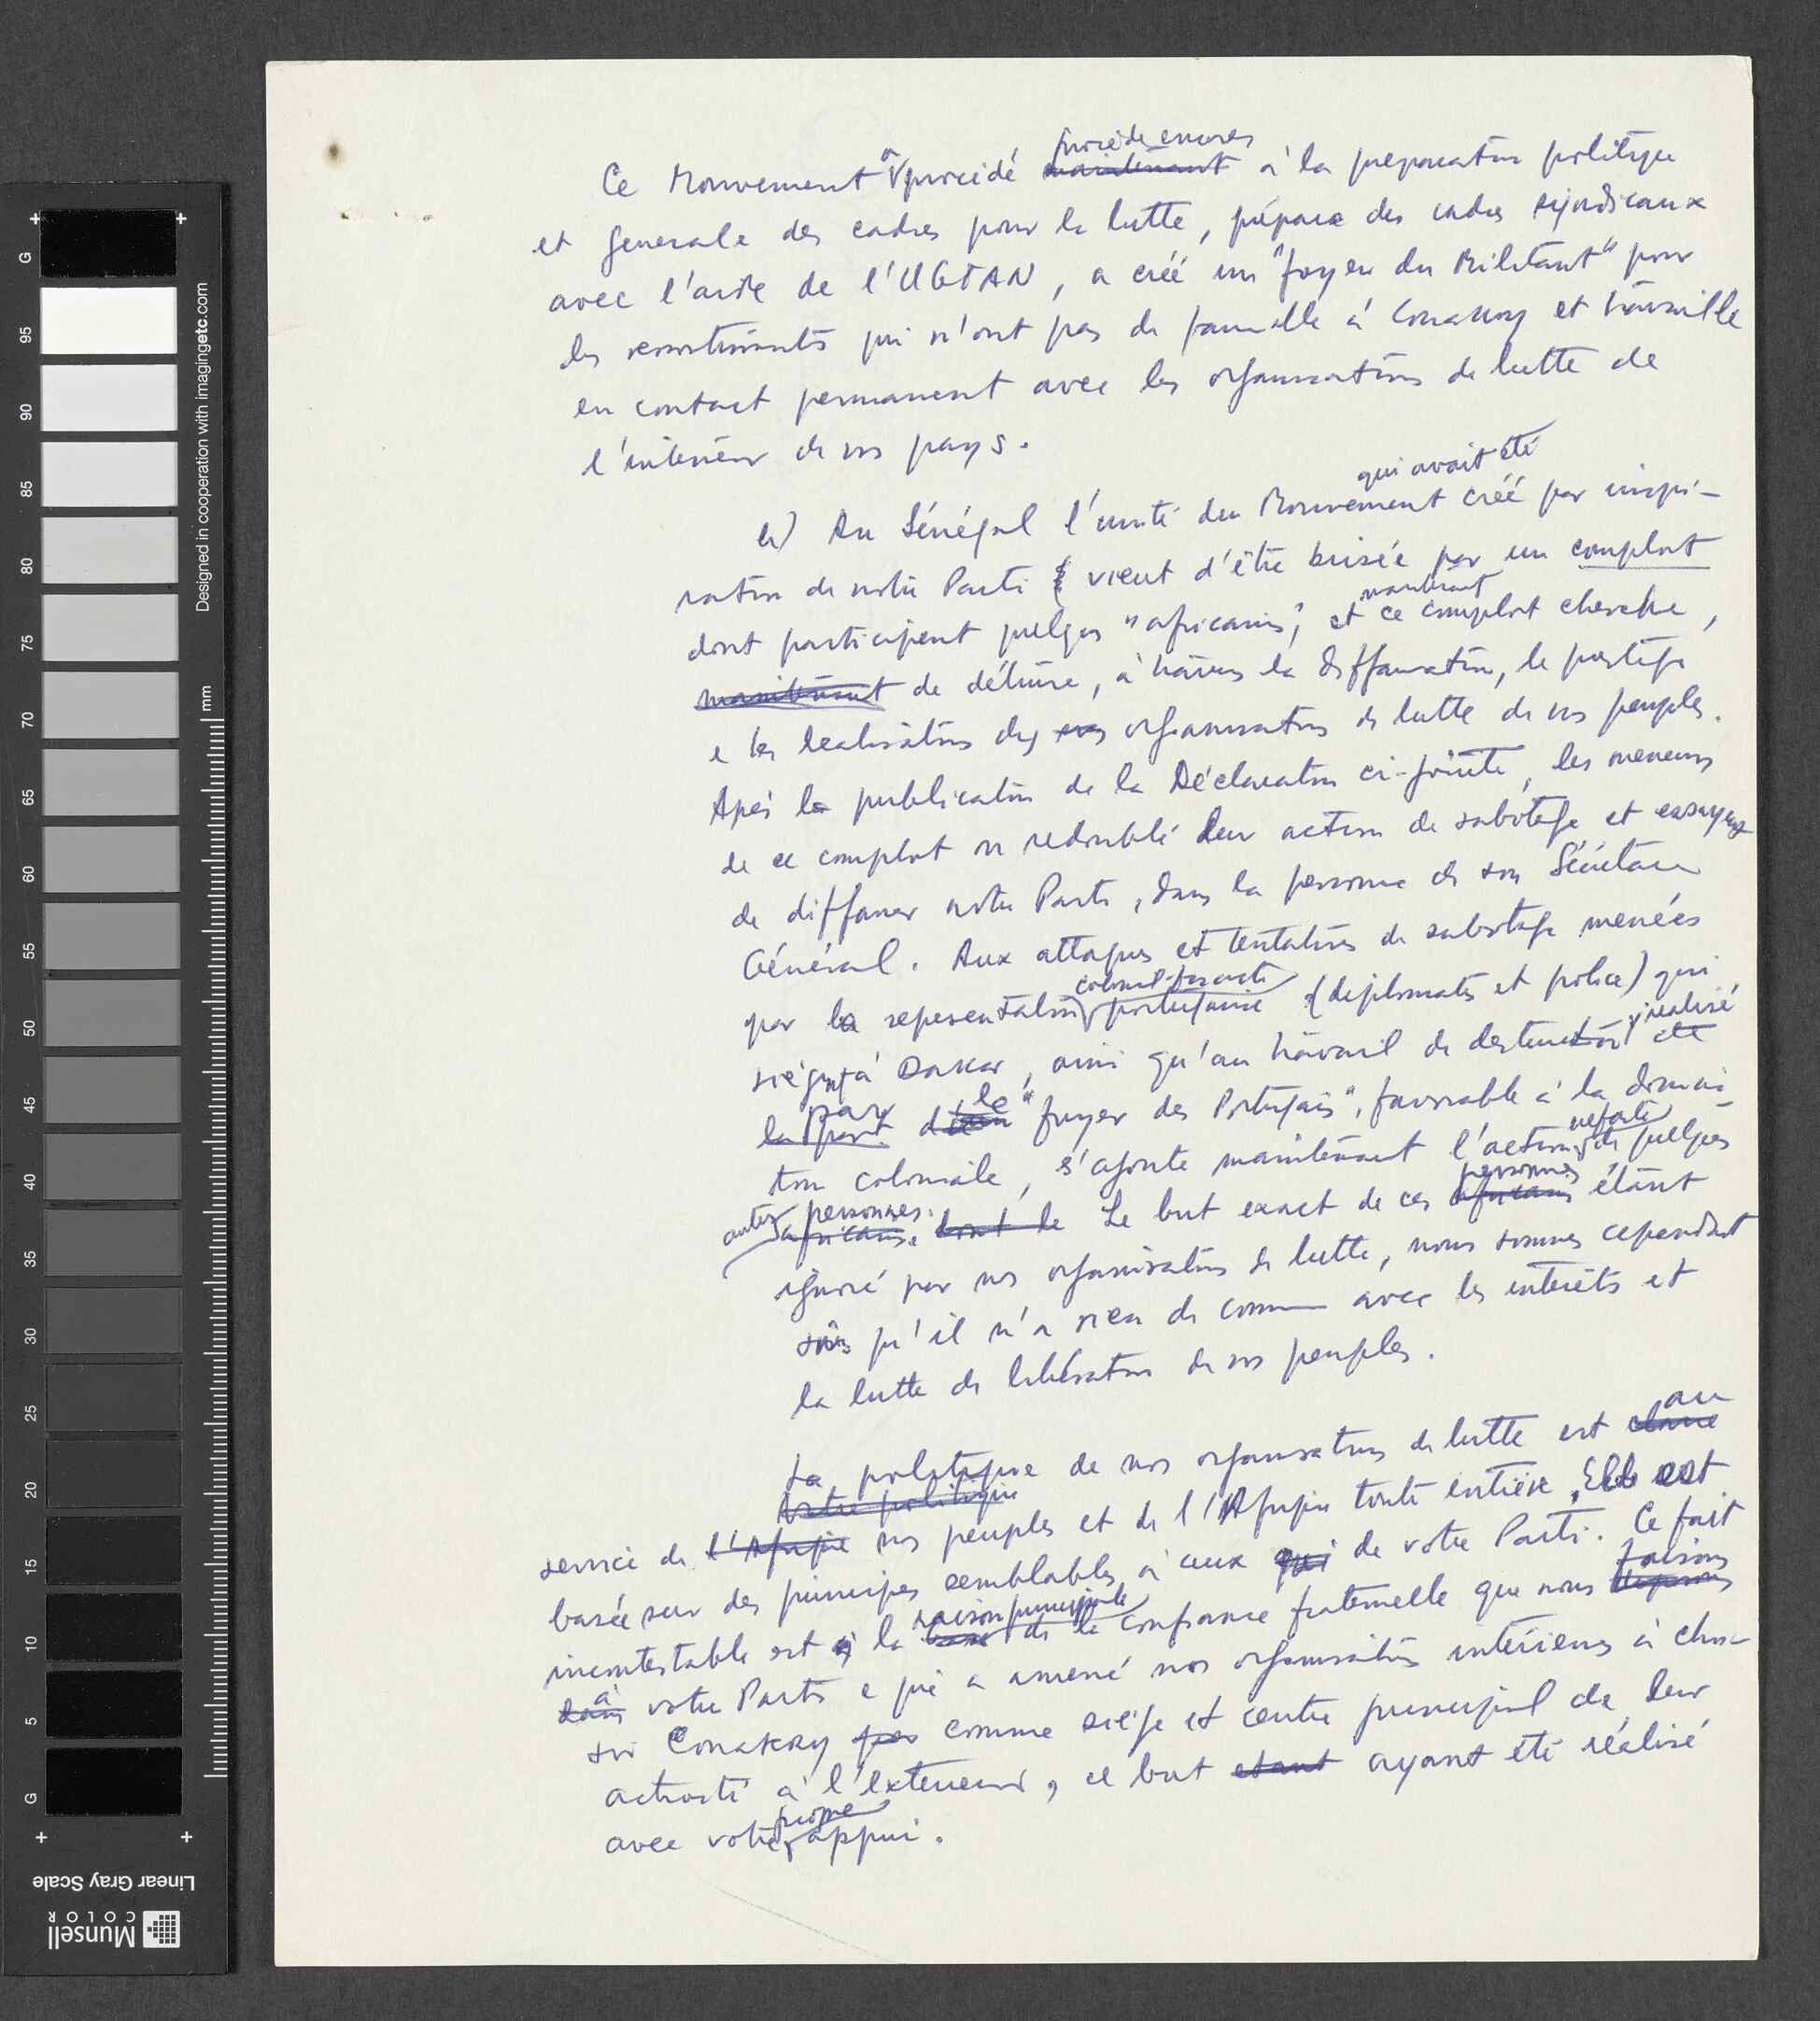 Ce Mouvement a procidé procide encores maintenant à la preparation politique
et generale des cadres pour la lutte, prépare des cadres syndicaux
avec l'aide de l'UGTAN, a créé un "foyer du Militant" pour
les ressortissants qui n'ont pas de famille à Conakry et travaille
en contact permanent avec les organisations de lutte de
l'intérieur de nos pays.
b) Au Sénégal l'unité du Mouvement qui avait été créé par inspi-
ration de notre Parti vient d'être brisée par un complot
dont participent quelques "africains", et ce complot cherche,
maintenant de détruire, à travers la diffamation, le prestige
e les realisations des nos organisations de lutte de nos peuples.
Après la publication de la Déclaration ci-jointe, les meneurs
de ce complot on redoublé leur action de sabotage et essayent
de diffamer notre Parti, dans la personne de son Sécrétaire
Général. Aux attaques et tentatives de sabotage menées
par la representation colonial-fasciste portugaise (diplomates et police) qui
siègent à Dakar, ainsi qu'au travail de destruction réalisé
la part par le "foyer des Portugais", favorable à la domina-
tion coloniale, s'ajoute maintenant l'action nefaste de quelques
autres personnes. africains. dont le Le but exact de ces personnes africains étant
ignoré par nos organisations de lutte, nous sommes cependant
sûrs qu'il n'a rien de commun avec les intérêts et
la lutte de libération de nos peuples.
La politique de nos organisations de lutte est au
Notre politique
service de l'Afrique nos peuples et de l'Afrique toute entière. Elle est
basée sur des principes semblables à ceux qui de votre Parti. Ce fait
incontestable est la raison principale base de la confiance fraternelle que nous faisons
dans à votre Parti e qui a amené nos organisations intérieures à choi-
sir Conakry comme siège et centre principal de leur
activité à l'exterieur, ce but etant ayant été réalisé
avec votre propre appui.
Munsell
COLOR
Linear Gray Scale
Designed in cooperation with imagingetc.com
mm
G 95 90 85 80 75 70 65 60 55 50 45 40 35 30 25 20 15 10 5 G